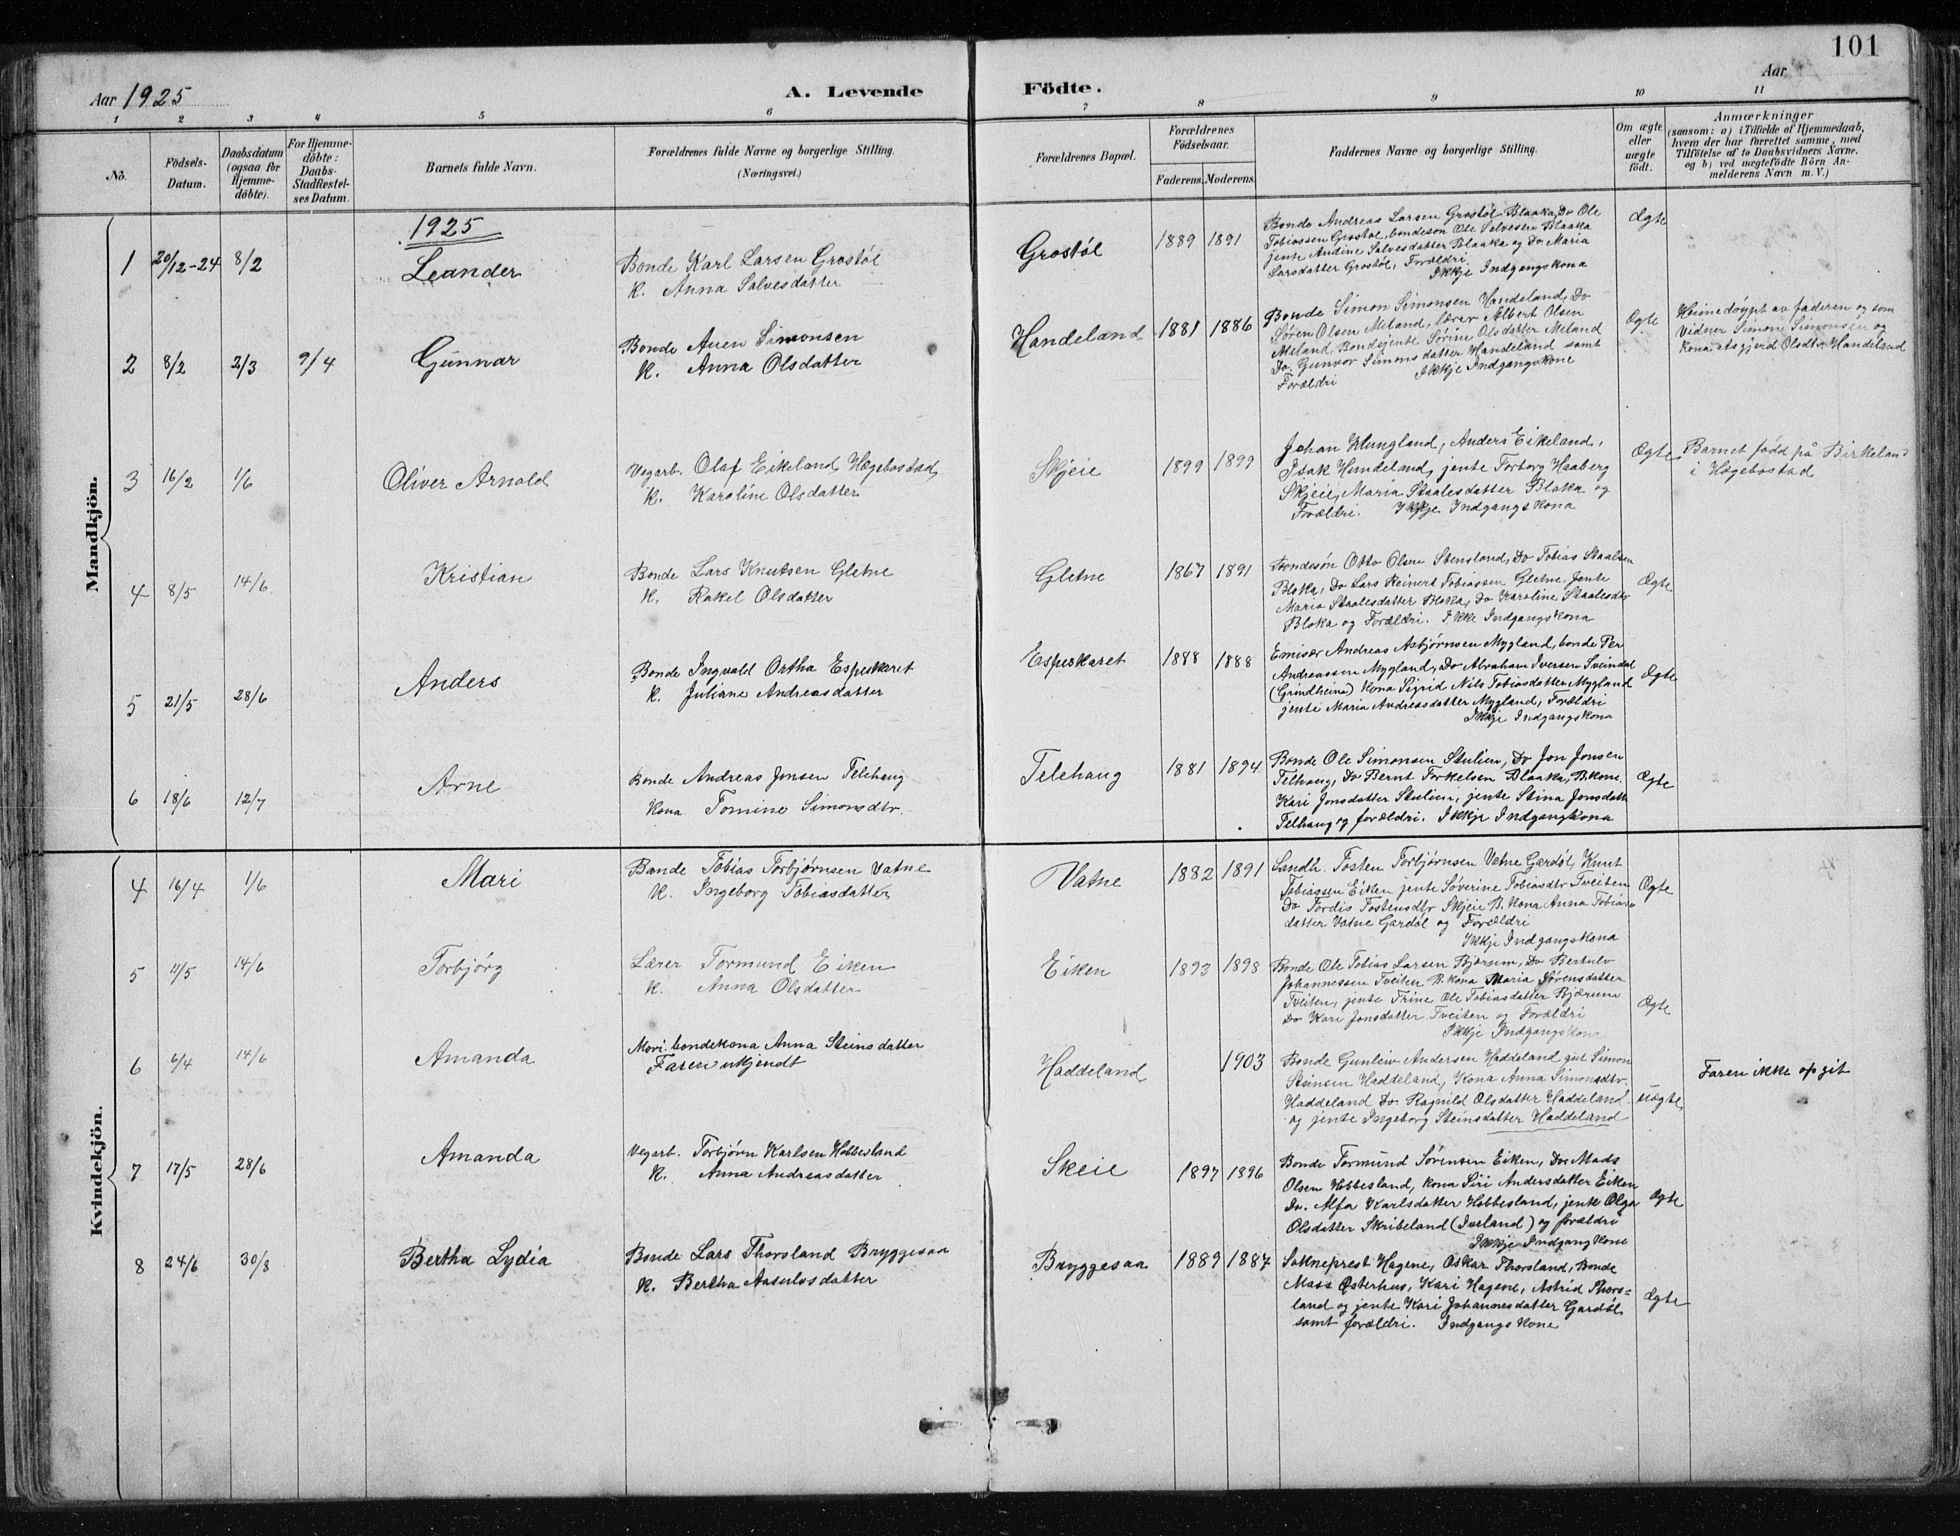 101
Aar 1925
A. Levende Födte.
Aar
1 2 3 4 5 6 7 8 9 10 11
No.
Födsels-
Datum.
Daabsdatum
(ogsaa för
Hjemme-
döbte).
For Hjemme-
döbte:
Daabs-
Stadfæstel-
ses Datum.
Barnets fulde Navn.
Forældrenes fulde Navne og borgerlige Stilling.
(Næringsvei.)
Forældrenes Bopæl.
Forældrenes
Födselsaar.
Faderens. Moderens.
Faddernes Navne og borgerlige Stilling.
Om ægte
eller
uægte
födt.
Anmærkninger
(saasom: a) i Tilfælde af Hjemmedaab,
hvem der har forrettet samme, med
Tilföielse af to Daabsvidners Navne.
og b) ved uægtefödte Börn An-
melderens Navn m. V.)
Mandkjön.
1925
1 20/12-24 8/2
Leander
Bonde Karl Larsen Grostøl
K. Anna Salvesdatter
Grostøl
1889 1891
Bonde Andreas Larsen Grostøl Blaaka, Do Ole
Tobiassen Grostøl, bondeson Ole Salvesen Blaaka
jente Andine Salvesdatter Blaaka og Do Maria
Larsdatter Grostøl, Forældri
Ikkje Indgangskona
Ægte
2 8/2 2/3 9/4
Gunnar
Bonde Auen Simonsen
K. Anna Olsdatter
Handeland
1881 1886
Bonde Simon Simonsen Handeland, Do
Søren Olsen Meland, lærer Albert Olsen
Meland, Bondejente Sørine Olsdatter Meland
Do. Gunvor Simonsdatter Handeland samt
Forældri Ikkje Indgangskone
Ægte
Heimedøypt av faderen og som
Vidner Simon Simonsen og
Kona Olsdtr Handeland
3 16/2 1/6
Oliver Arnold
Vegarb. Olaf Eikeland, Hægebostad
K. Karoline Olsdatter
Skjeie
1899 1899
Johan , Anders Eikeland,
Isak Hundeland, jente Torborg Haaberg
Skjeie, Maria Staalesdatter Bloka og
Forældri. Ikkje Indgangskona
Ægte
Barnet født på Birkeland
i Hægebostad
4 8/5 14/6
Kristian
Bonde Lars Knutsen Gletne
K. Rakel Olsdatter
Gletne
1867 1891
Bondesøn Otto Olsen Stensland, Do Tobias Staalsen
Bloka, Do Lars Reinert Tobiassen Gletne. Jente
Maria Staalesdatter Bloka, Do Karoline Staalesdtr
Bloka og Forældri. Ikke Indgangskona
Ægte
5 21/5 28/6
Anders
Bonde Ingvald Ortha Espeskaret
K. Juliane Andreasdatter
Espeskaret
1888 1888
Emisær Andreas Asbjørnsen Mygland, bonde Per
Andreassen Mygland, Do Abraham Iversen Sveindal
(Grindheim) Kona Sigrid Nils Tobiasdatter Mygland
jente Maria Andreasdatter Mygland, Forældri
Ikkje Indgangskona
Ægte
6 18/6 12/7
Arne
Bonde Andreas Jonsen Telehaug
Kona Tomine Simonsdtr.
Telehaug
1881 1894
Bonde Ole Simonsen Stulien, Do Jon Jonsen
Telhaug, Do Bernt Torkelsen Blaaka, B.kone
Kari Jonsdatter Stulien, jente Stina Jonsdattr
Telhaug og forældri. Ikkje Indgangkona
Ægte
Kvindekjön.
4 16/4 1/6
Mari
Bonde Tobias Torbjørnsen Vatne
K. Ingeborg Tobiasdatter
Vatne
1882 1891
Sandh. Tosten Torbjørnsen Vatne Gardøl, Knut
Tobiassen Eiken jente Søverine Tobiasdtr Tveiten
Do Tordis Tostensdtr Skjeie B. Kona Anna Tobias
datter Vatne Gardøl og Forældri
Ikkje Indgangskona
Ægte
5 11/5 14/6
Torbjørg
Lærer Tormund Eiken
K. Anna Olsdatter
Eiken
1893 1898
Bonde Ole Tobias Larsen Bjærum, Do Bertulv
Johannessen Tveiten B. kona Maria Sørensdatter
Tveiten, jente Trine Ole Tobiasdatter Bjærum
Do Kari Jonsdatter Tveiten og Forældri
Ikkje Indgangskona
Ægte
6 6/4 14/6
Amanda
Mori. bondekona Anna Steinsdatter
Faren ukjendt
Haddeland
1903
Bonde Gunleiv Andersen Haddeland gut Simon
Steinsen Haddeland, Kona Anna Simonsdtr.
Haddeland Do. Ragnild Olsdatter Haddeland.
og jente Ingeborg Steinsdatter Haddeland
uægte
Faren ikke opgit
7 17/5 28/6
Amanda
Vegarb. Torbjørn Karlsen Hobbesland
K. Anna Andreasdatter
Skeie
1897 1896
Bonde Tormund Sørensen Eiken, Do Mads
Olsen Hobbesland, kona Siri Andersdatter Eiken
Do. Alfa Karlsdatter Hobbesland, jente Olga
Olsdatter Skribeland (Iveland) og forældri
Ikkje Indgangkone
Ægte
8 24/6 30/8
Bertha Lydia
Bonde Lars Thorsland Bryggesaa
K. Bertha Aasulvsdatter
Bryggesaa
1889 1887
Sokneprest Hagene, Oskar Thorsland, Bonde
Mass Østerhus, Kari Hagene, Astrid Thors=
land og jente Kari Johannesdatter Gardøl
samt forældri. Indgangskone
Ægte